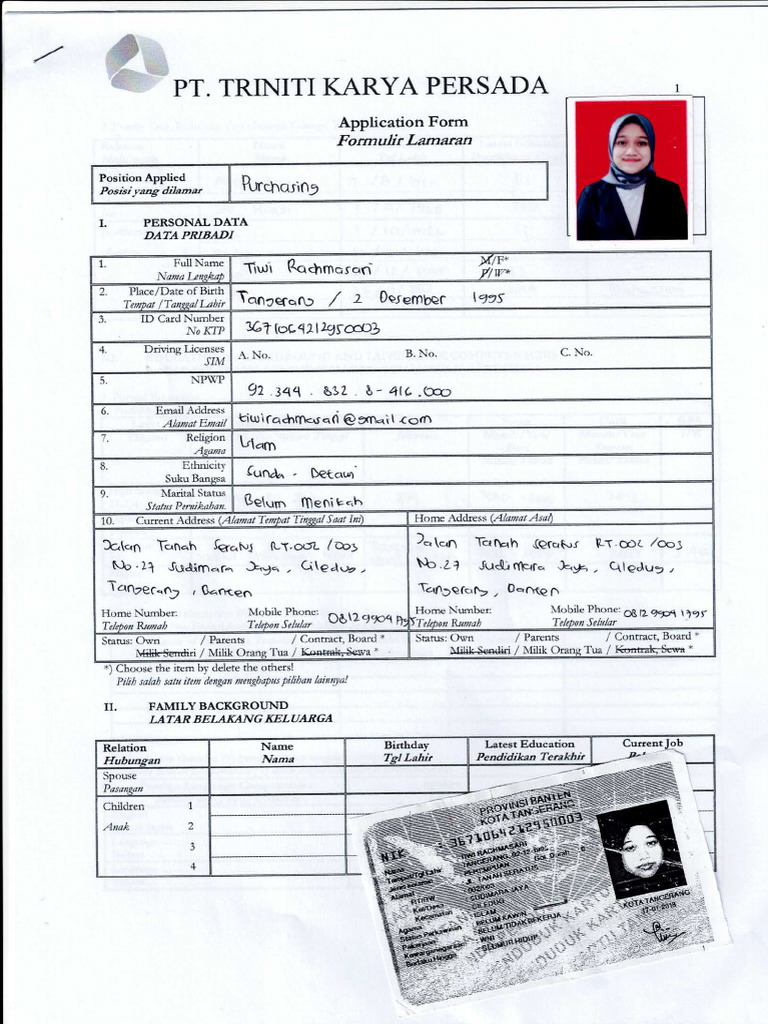 PT. TRINITI KARYA PERSADA
1
Application Form
Formulir Lamaran
Position Applied
Posisi yang dilamar
Purchasing
I. PERSONAL DATA
DATA PRIBADI
1. Full Name
Nama Lengkap
Tiwi Rachmasari
M/F*
P/W*
2. Place/Date of Birth
Tempat /Tanggal Lahir
Tangerang / 2 Desember 1995
3. ID Card Number
No KTP
3671064212950003
4. Driving Licenses
SIM
A. No. B. No. C. No.
5. NPWP
92.344.832.8-416.000
6. Email Address
Alamat Email
tiwirachmasari@gmail.com
7. Religion
Agama
Islam
8. Ethnicity
Suku Bangsa
Sunda - Betawi
9. Marital Status
Status Pernikahan
Belum Menikah
10. Current Address (Alamat Tempat Tinggal Saat Ini)
Jalan Tanah Seratus RT.002/003
No.27 Sudimara Jaya, Ciledug,
Tangerang, Banten
Home Number: Mobile Phone:
Telepon Rumah Telepon Selular
081299041795
Status: Own / Parents / Contract, Board *
Milik Sendiri / Milik Orang Tua / Kontrak, Sewa *
Home Address (Alamat Asal)
Jalan Tanah Seratus RT.002/003
No.27 Sudimara Jaya, Ciledug,
Tangerang, Banten
Home Number: Mobile Phone: 081299041795
Telepon Rumah Telepon Selular
Status: Own / Parents / Contract, Board *
Milik Sendiri / Milik Orang Tua / Kontrak, Sewa *
*) Choose the item by delete the others!
Pilih salah satu item dengan menghapus pilihan lainnya!
II. FAMILY BACKGROUND
LATAR BELAKANG KELUARGA
Relation Name Birthday Latest Education Current Job
Hubungan Nama Tgl Lahir Pendidikan Terakhir
Spouse
Pasangan
Children 1
Anak 2
3
4
PROVINSI BANTEN
KOTA TANGERANG
NIK : 3671064212950003
Nama : TIWI RACHMASARI
Tempat/Tgl Lahir : TANGERANG, 02-12-1995
Jenis kelamin : PEREMPUAN Gol. Darah
Alamat : JL TANAH SERATUS
RT/RW : 002/003
Kel/Desa : SUDIMARA JAYA
Kecamatan : CILEDUG
Agama : ISLAM
Status Perkawinan : BELUM KAWIN
Pekerjaan : BELUM/TIDAK BEKERJA
Kewarganegaraan : WNI
Berlaku Hingga : SEUMUR HIDUP
KOTA TANGERANG
17-01-2018